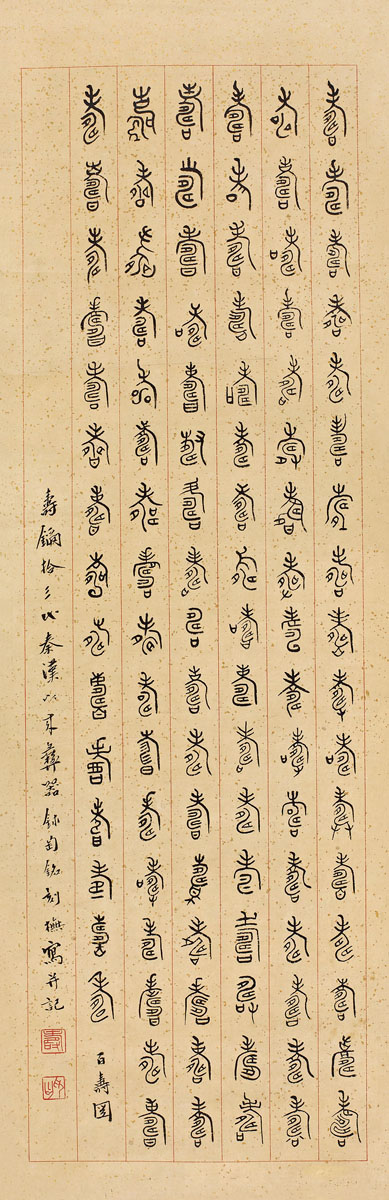 壽壽壽壽壽壽壽壽壽壽壽壽壽壽壽壽壽
壽壽壽壽壽壽壽壽壽壽壽壽壽壽壽壽壽
壽壽壽壽壽壽壽壽壽壽壽壽壽壽壽壽壽
壽壽壽壽壽壽壽壽壽壽壽壽壽壽壽壽壽
壽壽壽壽壽壽壽壽壽壽壽壽壽壽壽壽壽
壽壽壽壽壽壽壽壽壽壽壽壽壽壽壽百壽圖
壽鏑拾三代秦漢以來彝器鉨匋銘刻橅寫并記
壽